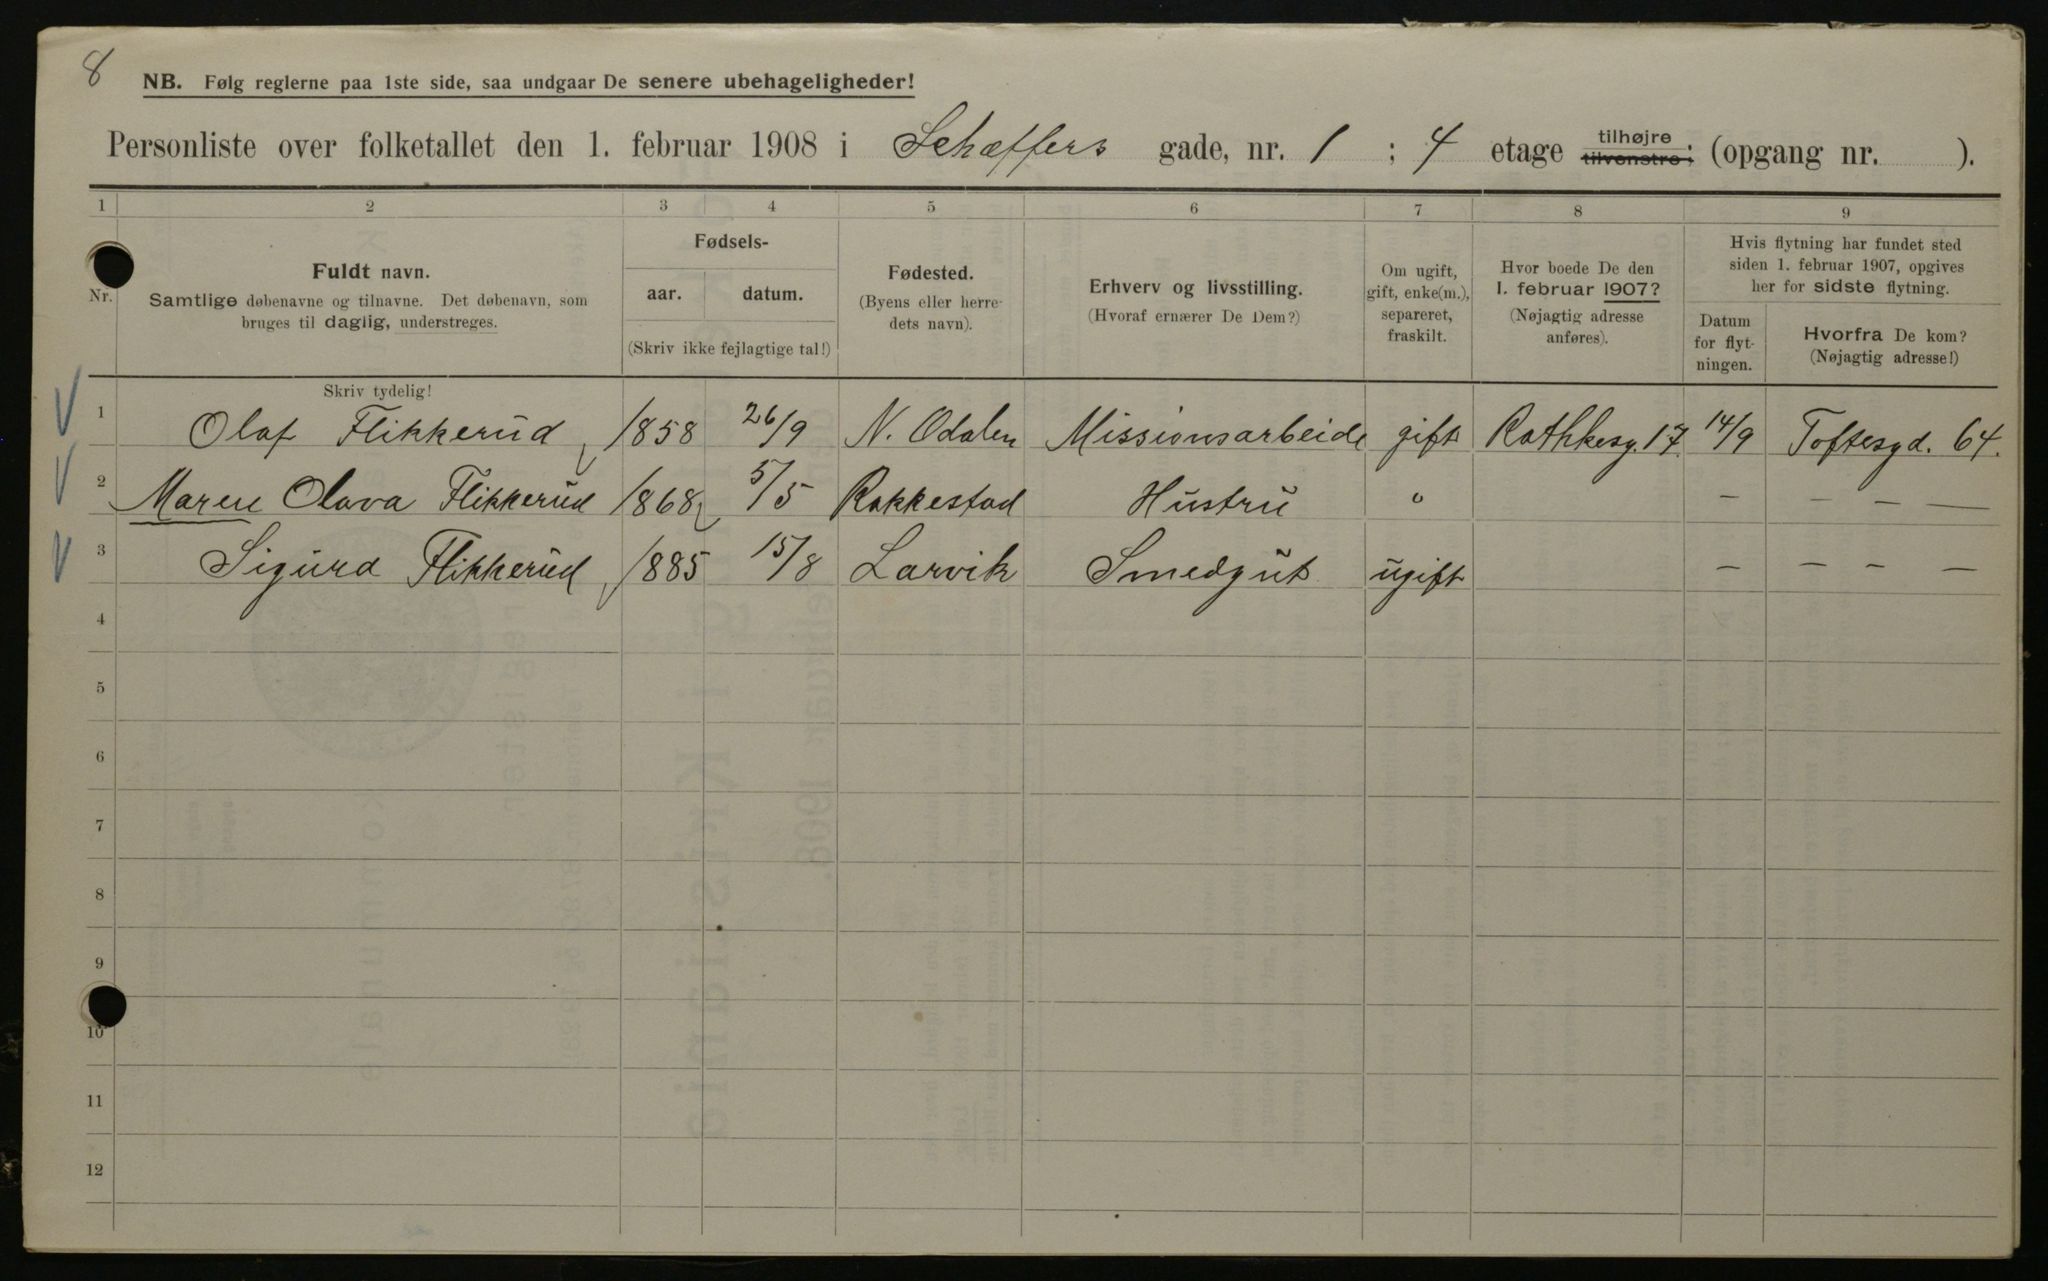 8
NB. Følg reglerne paa 1ste side, saa undgaar De senere ubehageligheder!
Personliste over folketallet den 1. februar 1908 i Schæffers gade, nr. 1 ; 4 etage tilhøjre tilvenstre; (opgang nr. ).
1 2 3 4 5 6 7 8 9
Nr.
Fuldt navn.
Samtlige døbenavne og tilnavne. Det døbenavn, som
bruges til daglig, understreges.
Fødsels-
aar. datum.
(Skriv ikke fejlagtige tal!)
Fødested.
(Byens eller herre-
dets navn).
Erhverv og livsstilling.
(Hvoraf ernærer De Dem?)
Om ugift,
gift, enke(m.),
separeret,
fraskilt.
Hvor boede De den
1. februar 1907?
(Nøjagtig adresse
anføres).
Hvis flytning har fundet sted
siden 1. februar 1907, opgives
her for sidste flytning.
Datum
for flyt-
ningen.
Hvorfra De kom?
(Nøjagtig adresse!)
Skriv tydelig!
1 Olaf Flikkerud 1858 26/9 N. Odalen Missionsarbeide gift Rathkesg. 17. 14/9 Toftesgd. 64.
2 Maren Olava Flikkerud 1868 5/5 Rakkestad Hustru " — — — —
3 Sigurd Flikkerud 1885 15/8 Larvik Smedgut ugift — — — —
4
5
6
7
8
9
10
11
12